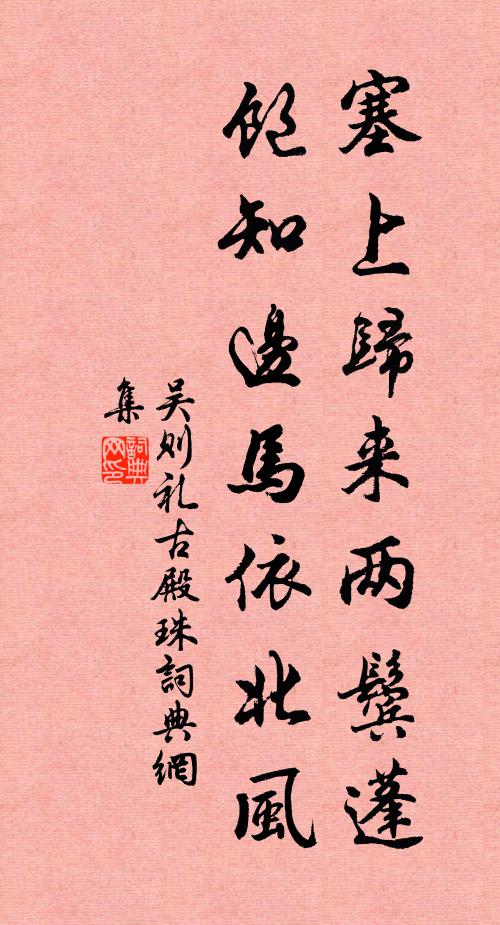 塞上歸来两鬓蓬
飽知邊馬依北風
吴则礼古殿珠詞典網
集
詞典網印